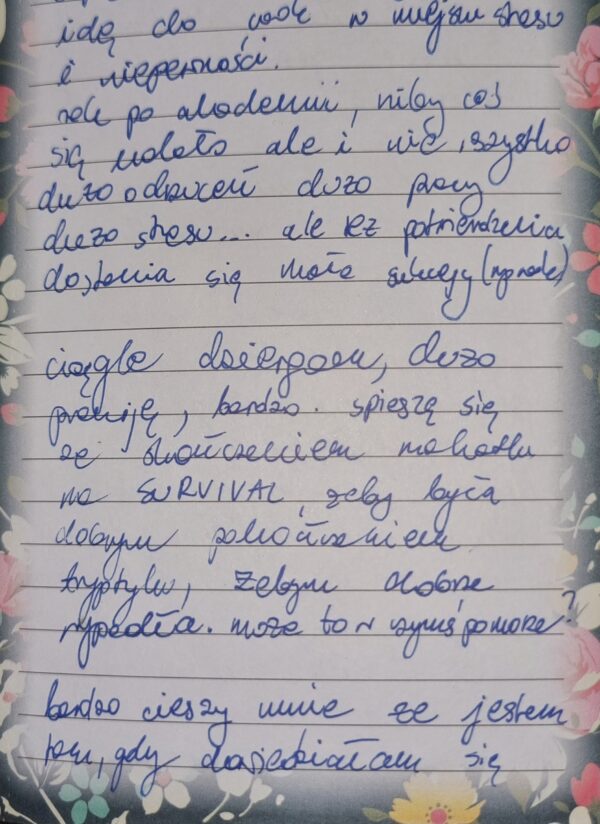 idę do wodę w miejscu stresu
i niepewności.
rok po akademii, niby coś
się udało ale i nie, szystko
dużo odrzuceń dużo pracy
dużo stresu... ale też potwierdzenia
dostania się małe sukcesy (np nade)
ciągle dziergam, dużo
pracuję, bardzo. spieszę się
ze skończeniem makatki
na SURVIVAL, żeby była
dobrym pokończeniem
tryptyku, żebym dobrze
wypadła. może to w czymś pomoże?
bardzo cieszy mnie że jestem
tam, gdy dowiedziałam się